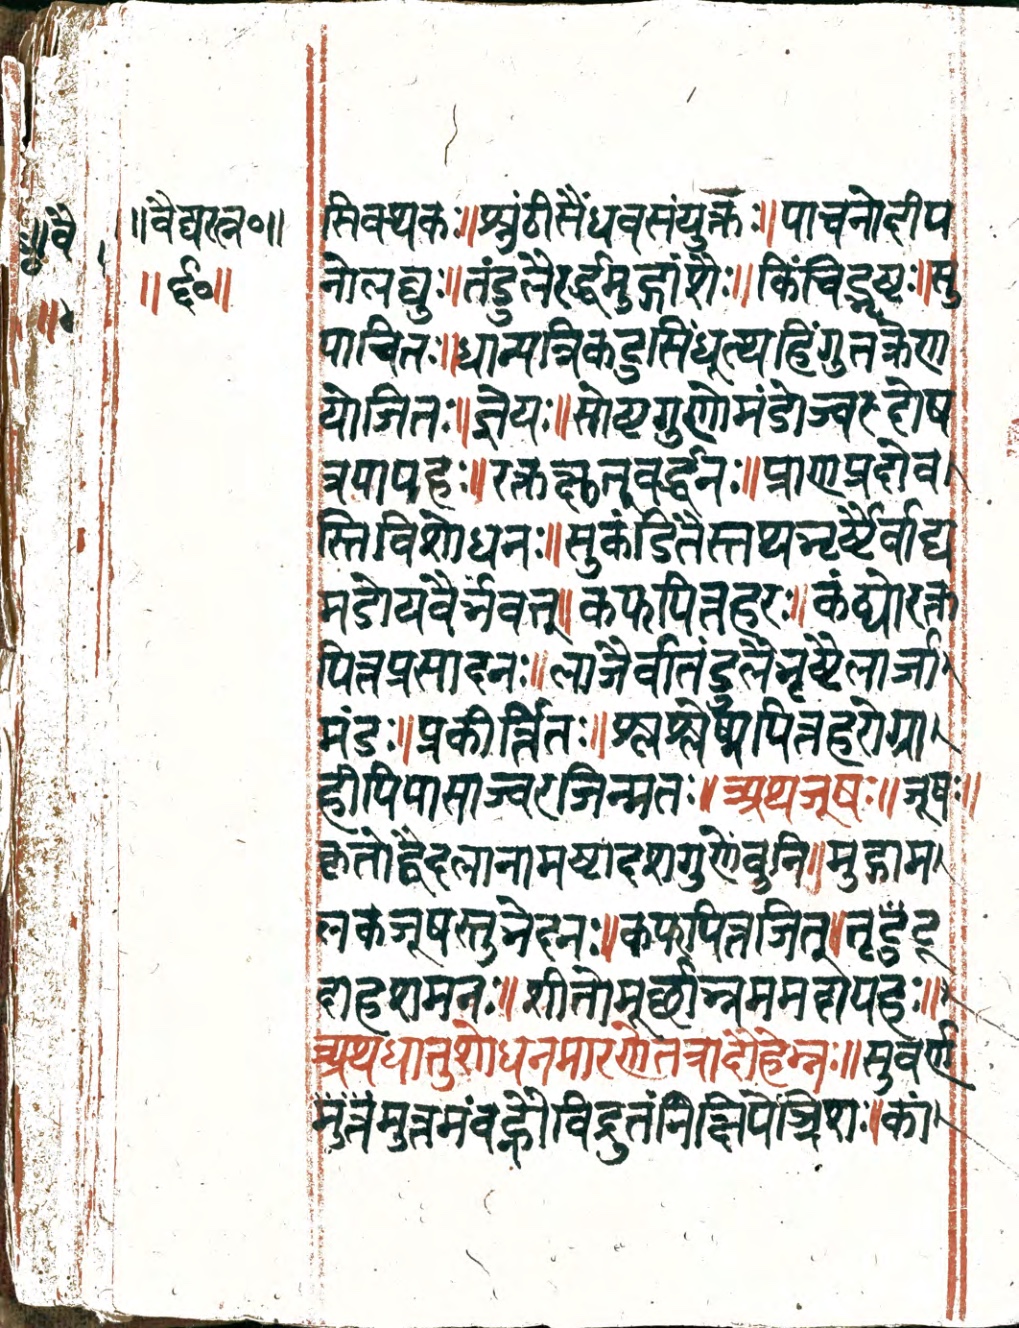 ॥वै
॥वैद्यरत्न॰॥
॥६०॥
सिक्थकः॥शुंठीसैंधवसंयुक्तः॥पाचनोदीप
नोलघुः॥तंडुलैरर्द्धमुद्गांशैः॥किंचिद्भृष्टः॥सु
पाचितः॥धान्यत्रिकटुसिंधूत्थहिंगुतक्रेण
योजितः॥ज्ञेयः॥सोष्टगुणोमंडोज्वरदोष
त्रयापहः॥रक्तक्षुत्तृवर्द्धनः॥प्राणप्रदोव
स्तिविशोधनः॥सुकंडितैस्तथाभृष्टैर्वाद्य
मंडोयवैर्भवेत्॥कफपित्तहरः॥कंठ्योरक्त
पित्तप्रसादनः॥लाजैर्वातंडुलैभृष्टैलाजा
मंडः॥प्रकीर्त्तितः॥श्लेष्मपित्तहरोग्रा
हीपिपासाज्वरजिन्मतः॥अथजूषः॥जूषः॥
कृतोद्वैदलानामष्टादशगुणेंवुनि॥मुद्गाम
लकजूषस्तुभेदनः॥कफपित्तजित्॥तृडुद्
दाहशमनः॥शीतोमूर्छाभ्रममदापहः॥
अथधातुशोधनमारणेतत्रादौहेम्नः॥सुवर्ण
मुत्तमंवह्नौविद्रुतंनिक्षिपेत्त्रिशः॥कां